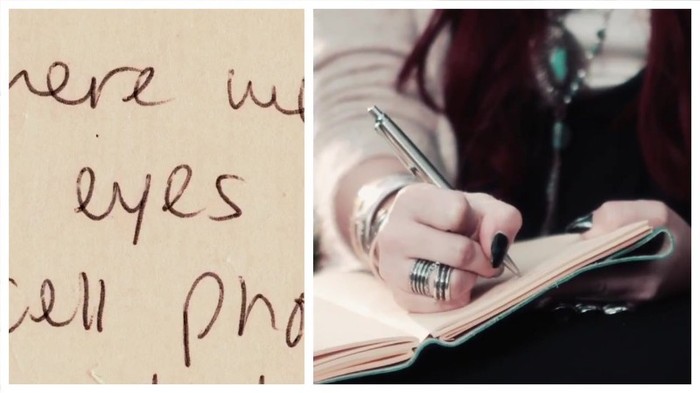 here we
eyes
cell pho